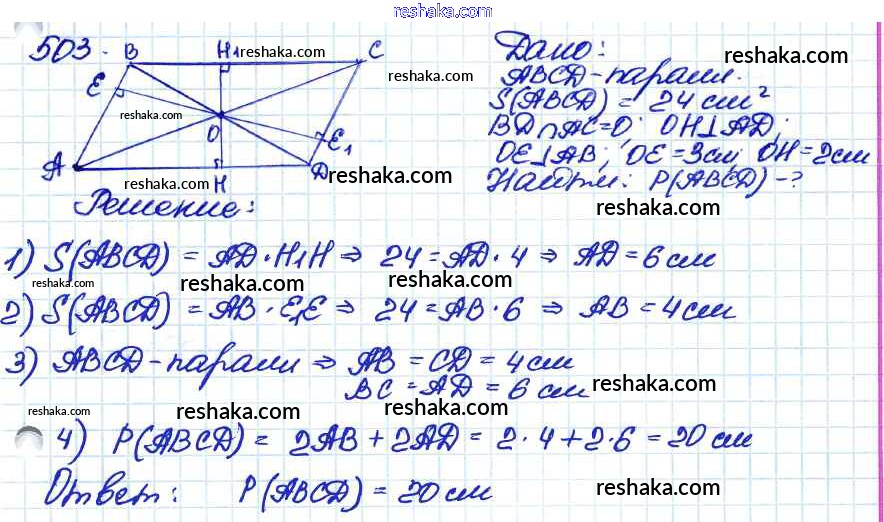 reshaka.com
503.
B H₁ reshaka.com C
E reshaka.com
reshaka.com
O E₁
A H D
reshaka.com reshaka.com
Дано: reshaka.com
ABCD - парал.
S(ABCD) = 24 см²
BD∩AC=O; OH⊥AD;
OE⊥AB; OE=3см; OH=2см
Найти: P(ABCD) - ?
reshaka.com
Решение:
1) S(ABCD) = AD · H₁H ⇒ 24 = AD · 4 ⇒ AD = 6 см
reshaka.com reshaka.com reshaka.com
2) S(ABCD) = AB · E₁E ⇒ 24 = AB · 6 ⇒ AB = 4 см
3) ABCD - парал ⇒ AB = CD = 4 см
BC = AD = 6 см reshaka.com
reshaka.com reshaka.com reshaka.com
4) P(ABCD) = 2AB + 2AD = 2 · 4 + 2 · 6 = 20 см
Ответ: P(ABCD) = 20 см reshaka.com